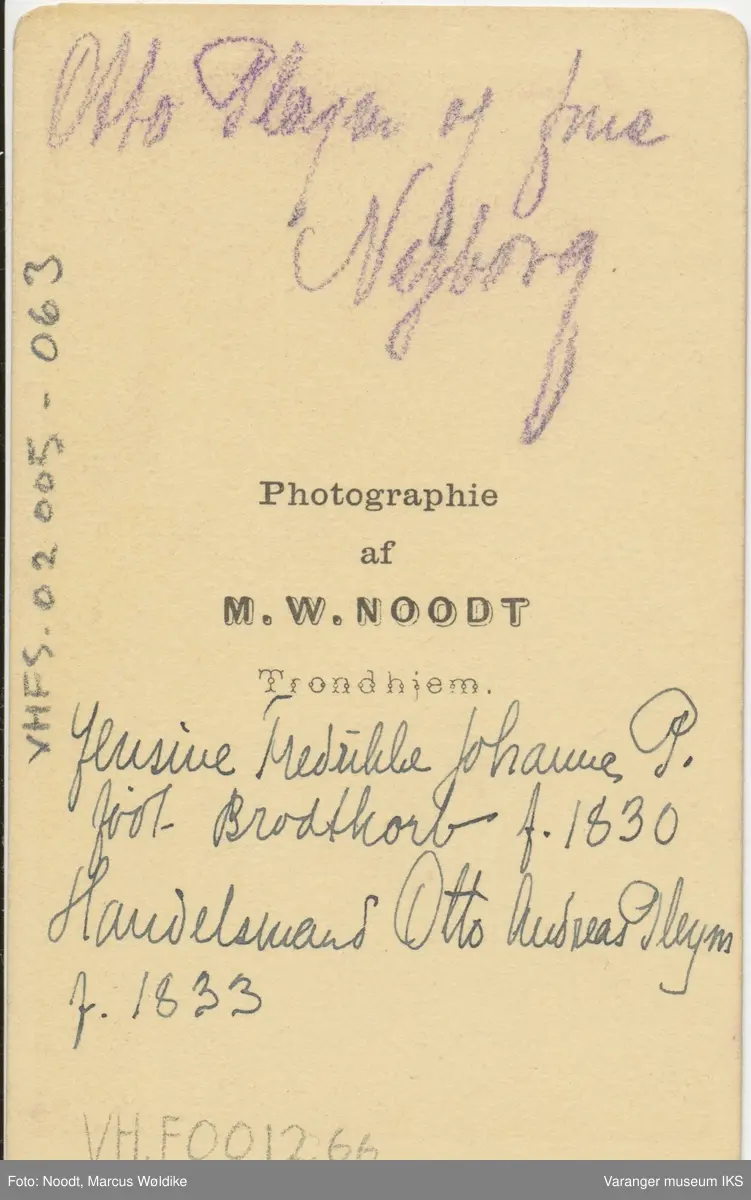 Otto Pleym og frue
Nyborg.
VHFS.02005-063
Photographie
af
M. W. NOODT
Trondhjem.
Jensine Fredrikke Johanne P.
født Brodtkorb f. 1830
Handelsmand Otto Andreas Pleym
f. 1833
VH.F001266
Foto: Noodt, Marcus Wøldike
Varanger museum IKS